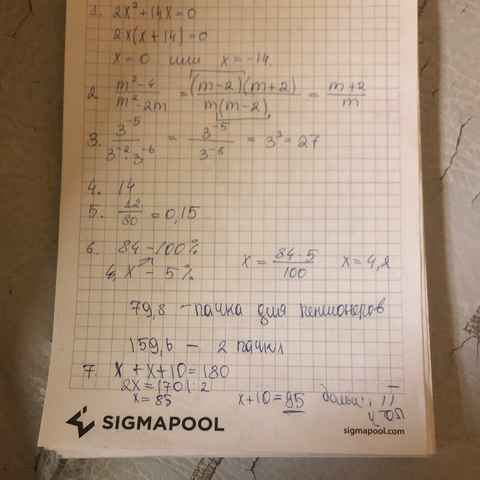 1. 2x² + 14x = 0
2x(x + 14) = 0
x = 0 или x = -14
2. m² - 4 / m² - 2m = (m - 2)(m + 2) / m(m - 2) = m + 2 / m
3. 3⁻⁵ / 3⁻² · 3⁻⁶ = 3⁻⁵ / 3⁻⁶ = 3³ = 27
4. 14
5. 12 / 80 = 0,15
6. 84 - 100%
x - 5% x = 84 · 5 / 100 x = 4,2
79,8 - пачка для пенсионеров
159,6 - 2 пачки
7 x + x + 10 = 180
2x = 170 | : 2
x = 85 x + 10 = 95
SIGMAPOOL
sigmapool.com